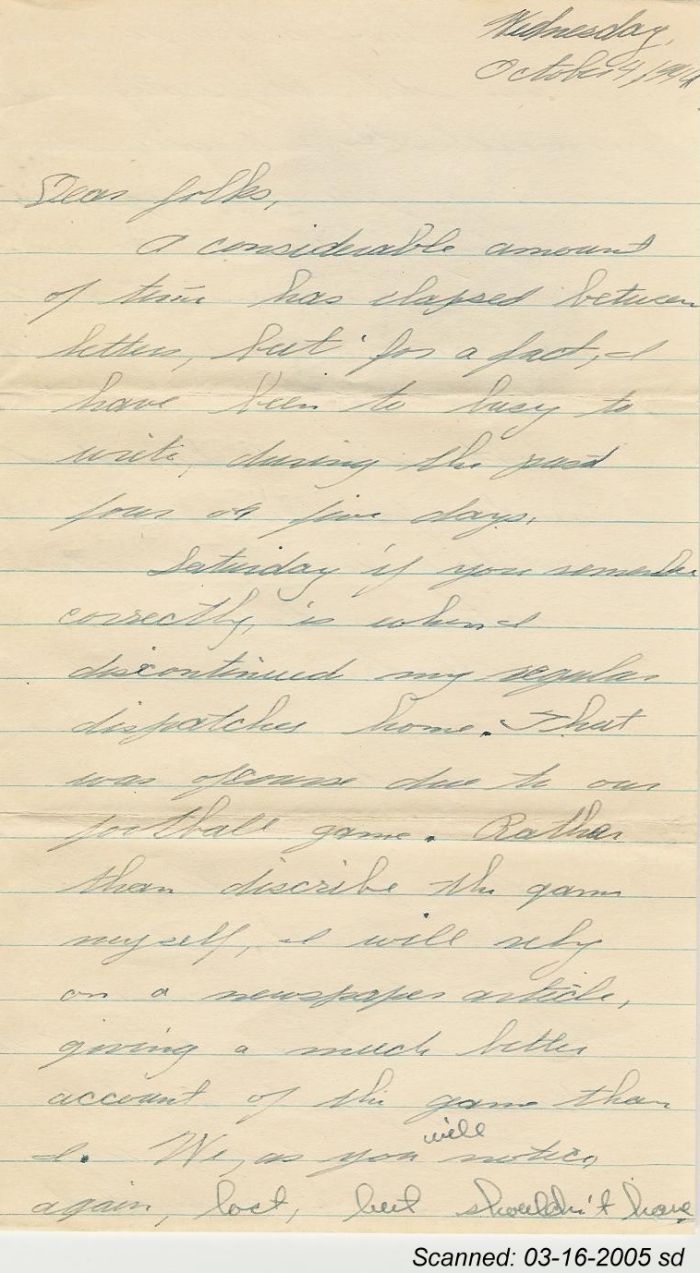 Wednesday,
October 4, 1944
Dear folks,
A considerable amount
of time has elapsed between
letters, but for a fact, I
have been to busy to
write, during the past
four or five days.
Saturday if you remember
correctly, is when I
discontinued my regular
dispatches home. That
was ofcourse due to our
football game. Rather
than discribe the game
myself, I will rely
on a newspaper article,
giving a much better
account of the game than
I. We, as you will notice,
again, lost, but shouldn't have
Scanned: 03-16-2005 sd